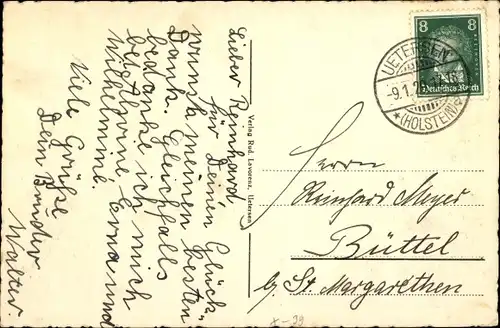 Lieber Reinhard
für Deinen Glück-
wunsch meinen besten
Dank. Gleichfalls
bedanke ich mich
bei Horne Erna und
Wilhelmine.
Viele Grüße
Dein Bruder
Walter.
Verlag Rud. Lavorenz, Uetersen
8 8
Deutsches Reich
UETERSEN
9.1.2
*(HOLSTEIN)
Herrn
Reinhard Meyer
Büttel
b/g St. Margarethen
x-29